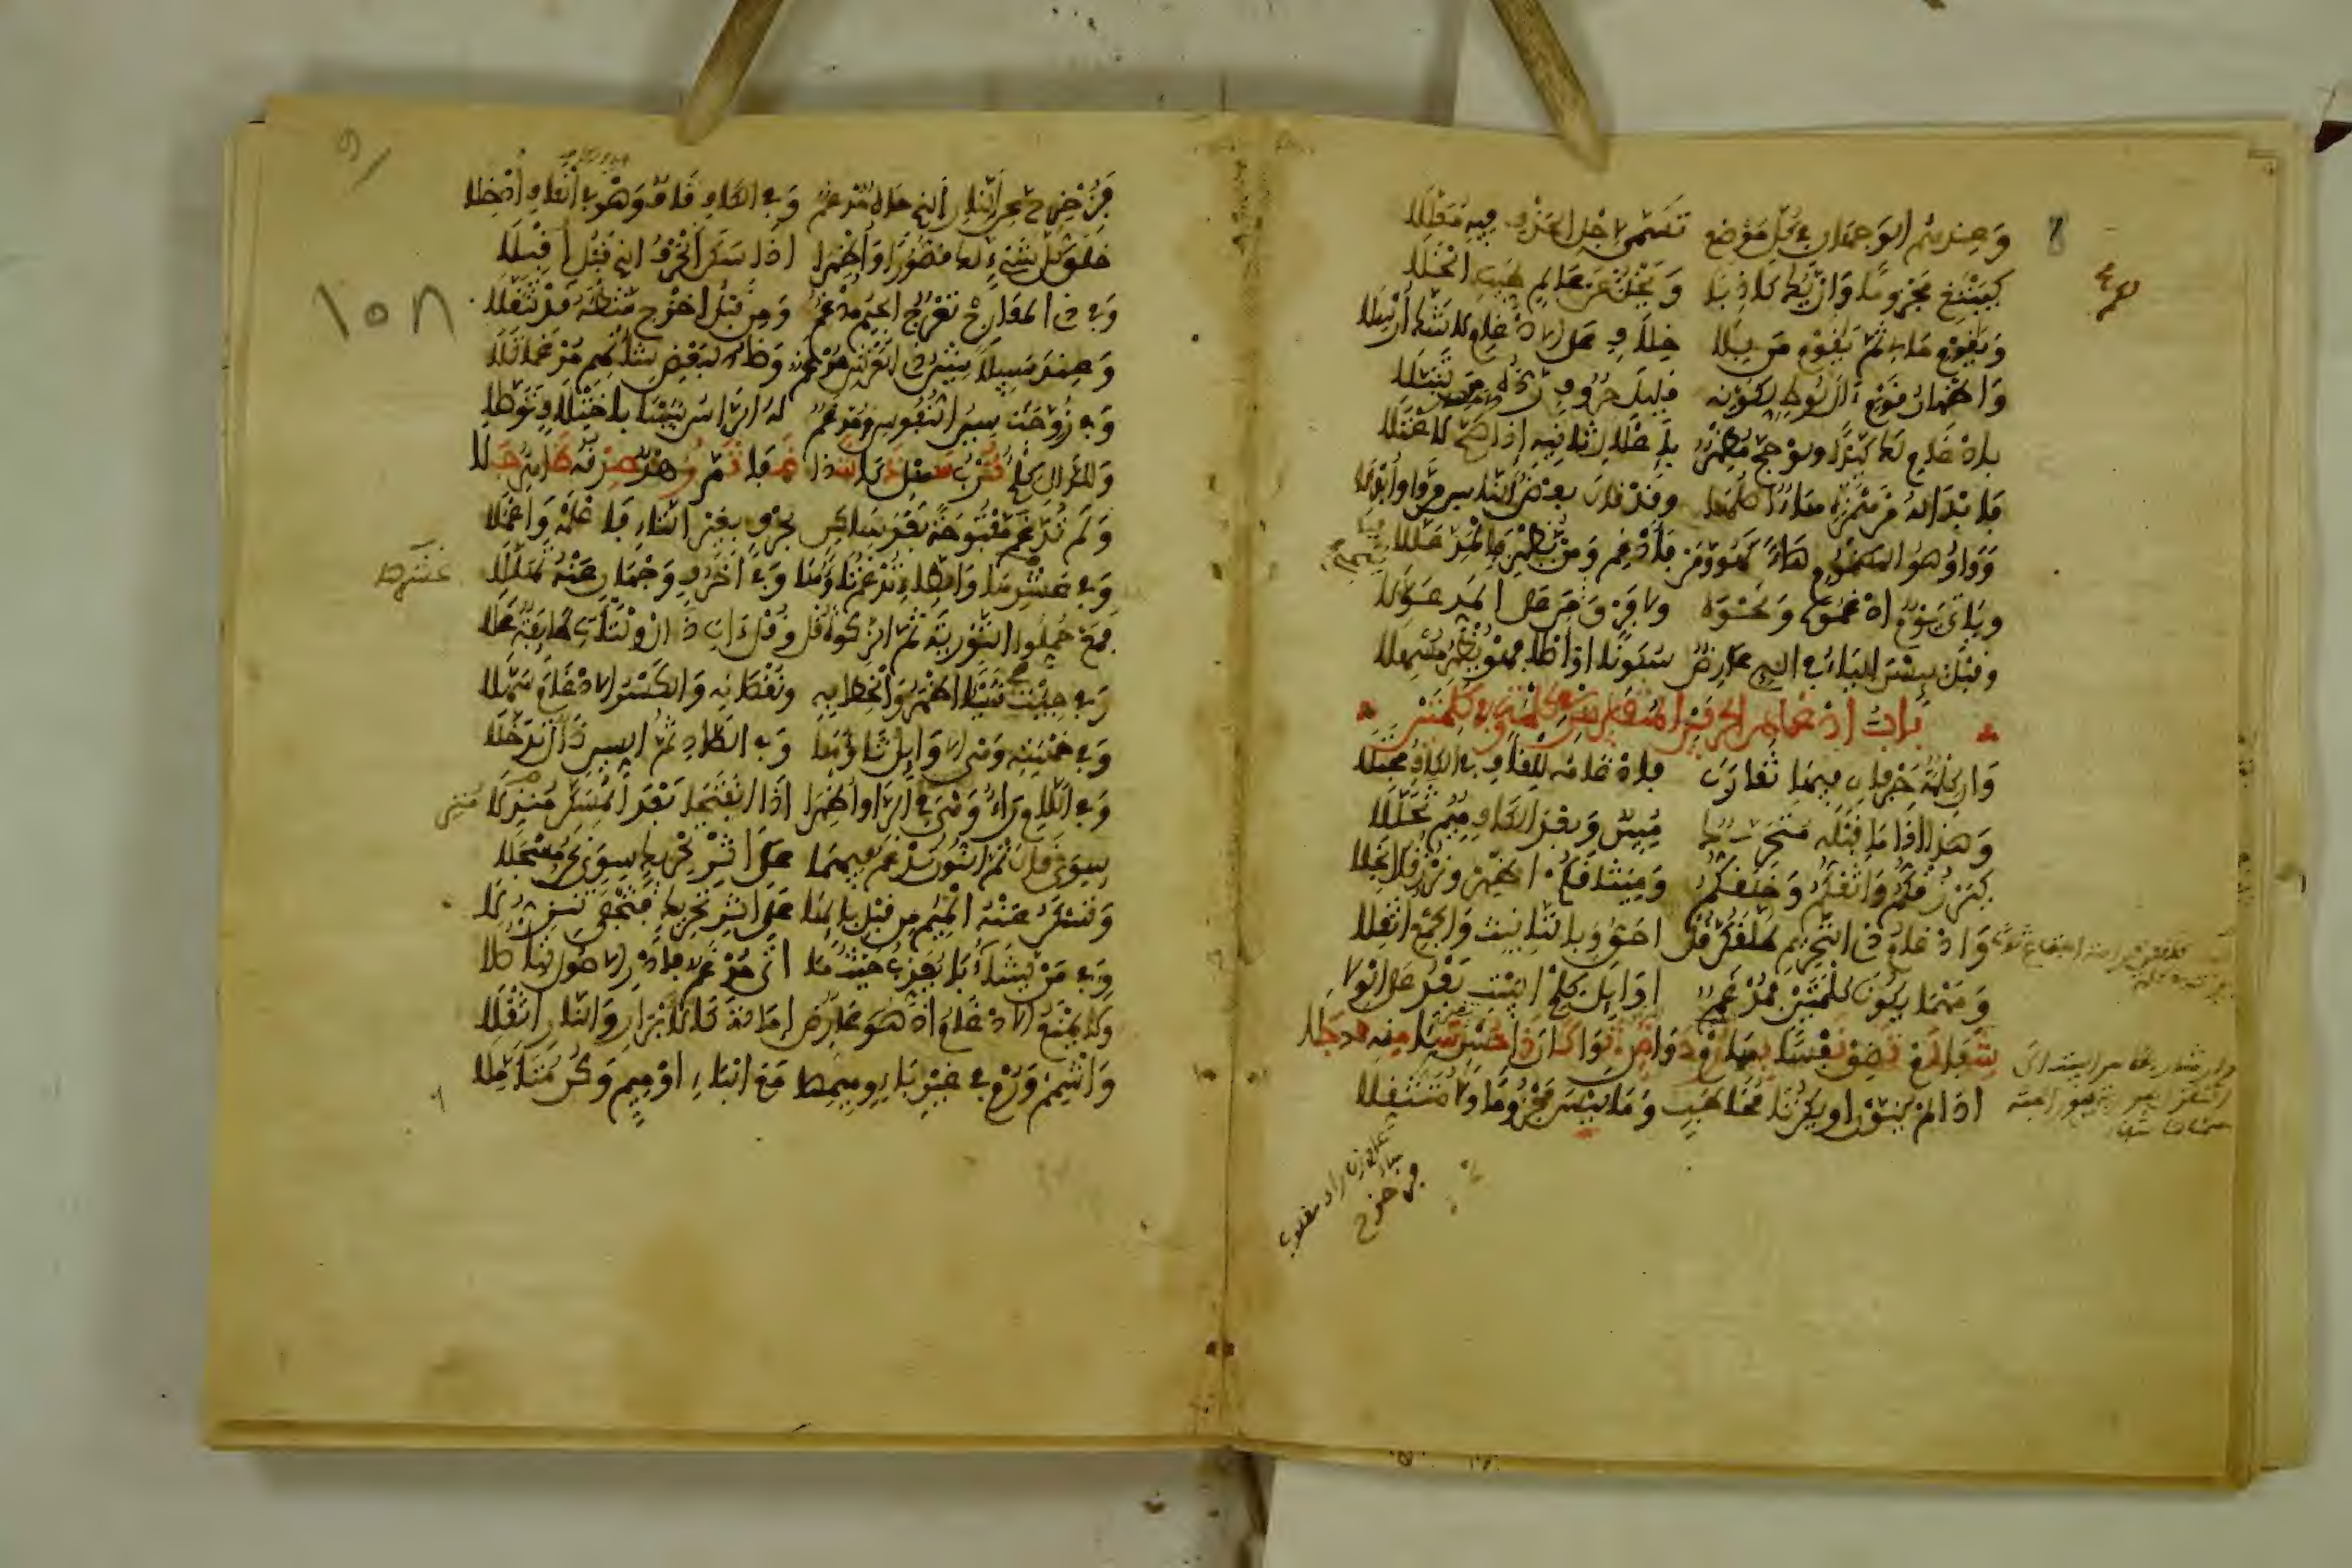 8
وعندهم الوجهان في كل موضع تسمى لاجل الحذف فيه معللا
كيبتغ مجزوما وان يك كاذبا ويخل لكم عن عالم طيب الخلا
ويقوم مالي ثم يقوم من بلا خلاف على الادغام لا شك ارسلا
واظهار قوم ءال لوط لكونه قليل حروف رده من تنبلا
بادغام لك كيدا ولو حج مظهر باعلال ثانيه اذا صح لاعتلا
فابداله من همزة هاء اصلها وقد قال بعض الناس من واو ابدلا
وواو هو المضموم هاء كهو ومن فادغم ومن يظهر فبالمد عللا
وياتي يوم ادغموه ونحوه ولا فرق ينجي من على المد عولا
وقبل يئسن الياء في اللاء عارض سكونا او اصلا فهو يظهر مسهلا
باب ادغام الحرفين المتقاربين في كلمة وفي كلمتين
وان كلمة حرفان فيها تقاربا فادغامه للقاف في الكاف مجتلا
وهذا اذا ما قبله متحرك مبين وبعد الكاف ميم تخللا
كيرزقكم واثقكم وخلقكم وميثاقكم اظهر ونرزقك انجلا
وادغام ذي التحريم طلقكن قل احق وبالتانيث والجمع اثقلا
ومهما يكونا كلمتين فمدغم اوائل كلم البيت بعد على الولا
شفا لم تضق نفسا بها رم دوا ضن ثوى كان ذا حسن سئا منه قد جلا
اذا لم ينون او يكن تا مخاطب وما ليس مجزوما ولا متثقلا
فزحزح
9
١٥٨
فزحزح عن النار الذي حاه مدغم وفي الكاف قاف وهو في القاف ادخلا
خلق كل شيء لك قصورا واظهرا اذا سكن الحرف الذي قبل اقبلا
وفي ذي المعارج تعرج الجيم مدغم ومن قبل اخرج شطئه قد تثقلا
وعند سبيلا شين ذي العرش مدغم وضاد لبعض شانهم مدغما تلا
وفي زوجت سين النفوس ومدغم له الراس شيبا باختلاف توصلا
وللدال كلم ترب سهل ذكا شذا ضفا ثم زهد صدقه ظاهر جلا
ولم تدغم مفتوحة بعد ساكن بحرف بغير التاء فاعلمه واعملا
وفي عشرها والطاء تدغم تاؤها وفي احرف وجهان عنه تهللا
عشرها
فمع حملوا التورية ثم الزكوة قل وقل ءات ذا ال ولتات طائفة علا
وفي جئت شيئا اظهروا لخطابه ونقصانه والكسر الادغام سهلا
وفي خمسة وهي الاوائل ثاؤها وفي الصاد ثم السين ذال تدخلا
وفي اللام راء وهي في الرا واظهرا اذا انفتحا بعد المسكن منزلا
سوى قال ثم النون تدغم فيهما على اثر تحريك سوى نحن مسجلا
وتسكن عنه الميم من قبل بائها على اثر تحريك فتخفى تنزلا
وفي من يشاء با يعذب حيثما اتى مدغم فادر الاصول لتاصلا
ولا يمنع الادغام اذ هو عارض امالة كالابرار والنار اثقلا
واشمم ورم في غير باء وميمها مع الباء او ميم وكن متاملا